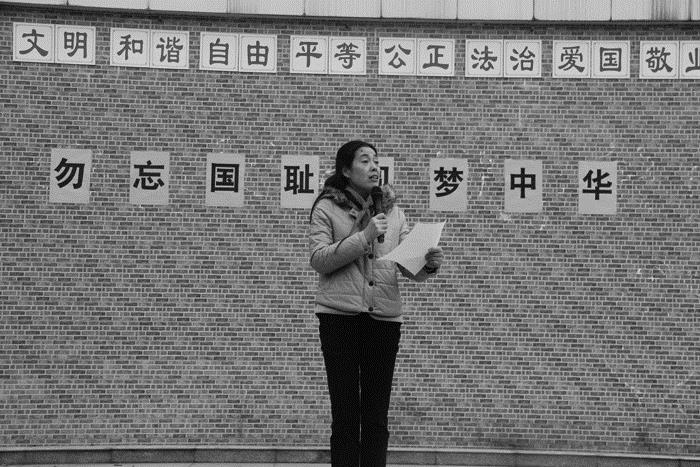 文明 和谐 自由 平等 公正 法治 爱国 敬业
勿忘国耻 梦中华